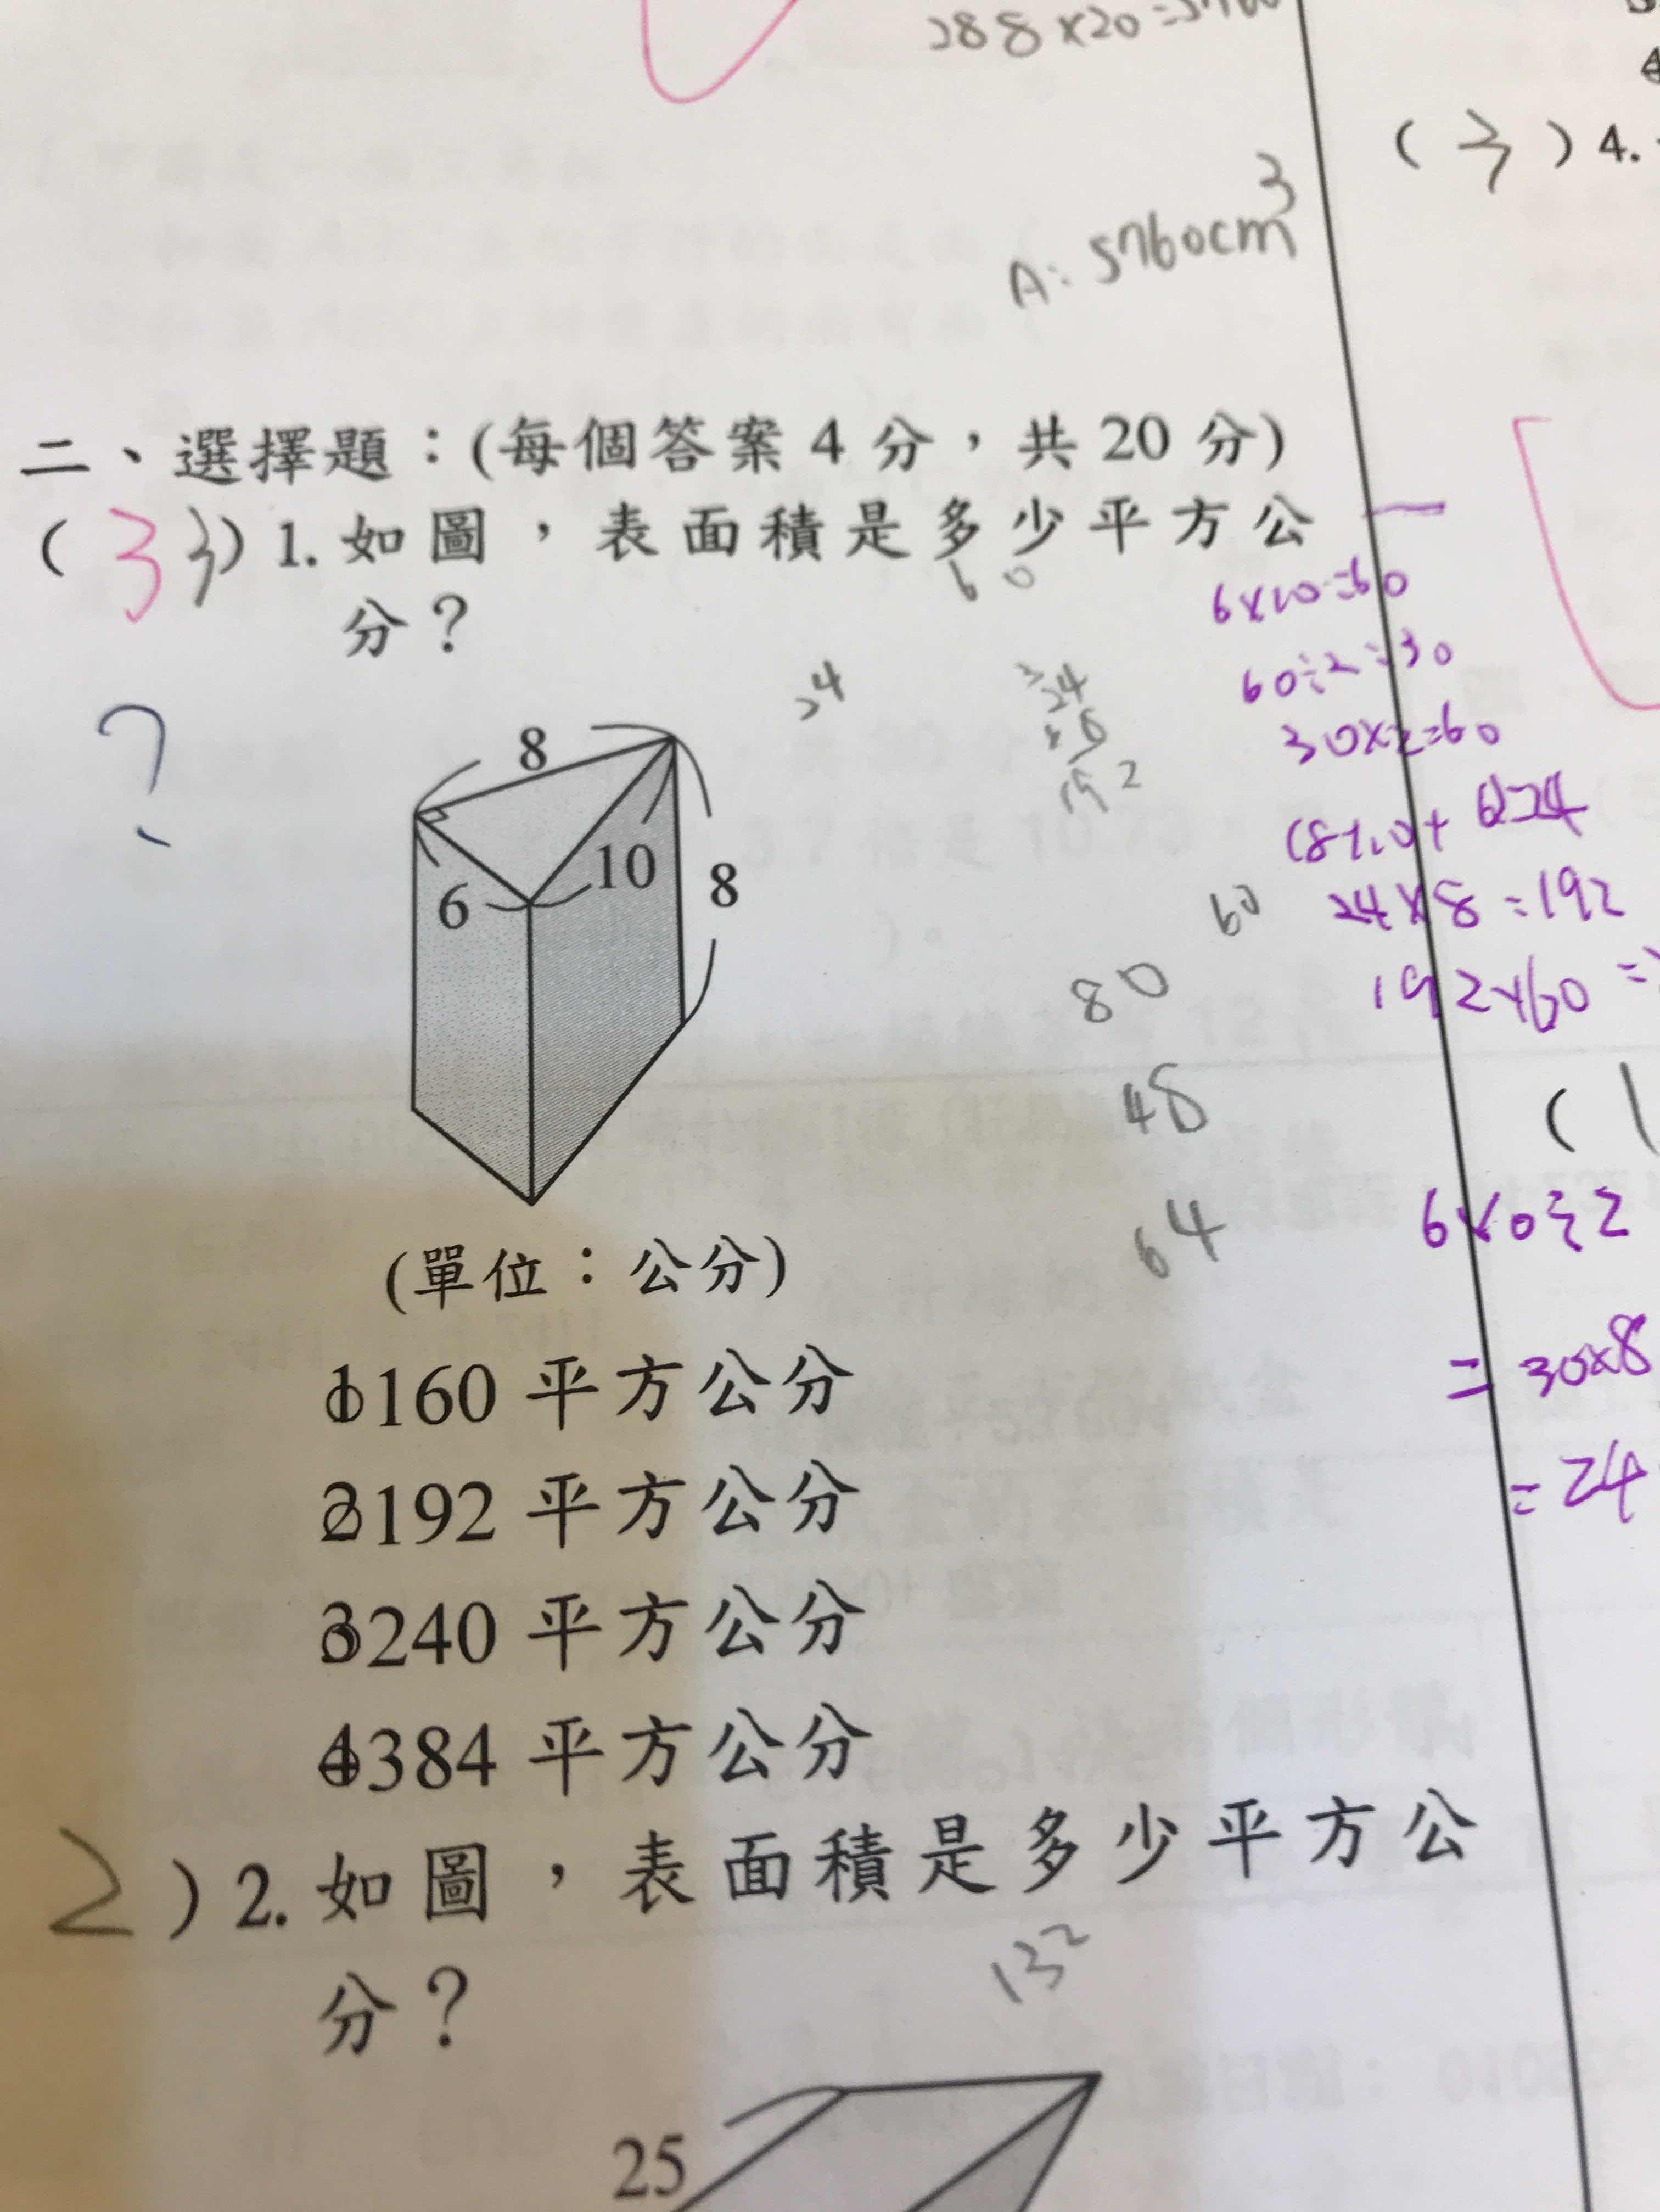 288×20=5760
A: 5760cm³
(3)4.
二、選擇題：(每個答案 4 分，共 20 分)
(3 3)1. 如圖，表面積是多少平方公
分？
60
6×10=60
60÷2=30
30×2=60
24×8=192
24
24
192
?
8
6
10
8
60
80
48
64
(1
=30×8
=24
(單位：公分)
①160 平方公分
②192 平方公分
③240 平方公分
④384 平方公分
2)2. 如圖，表面積是多少平方公
分？
132
25